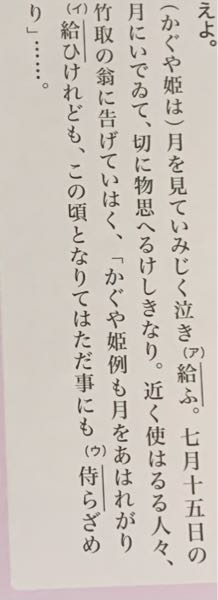 えよ。
(かぐや姫は)月を見ていみじく泣き(ア)給ふ。七月十五日の
月にいでゐて、切に物思へるけしきなり。近く使はるる人々、
竹取の翁に告げていはく、「かぐや姫例も月をあはれがり
(イ)給ひけれども、この頃となりてはただ事にも(ウ)侍らざめ
り」……。